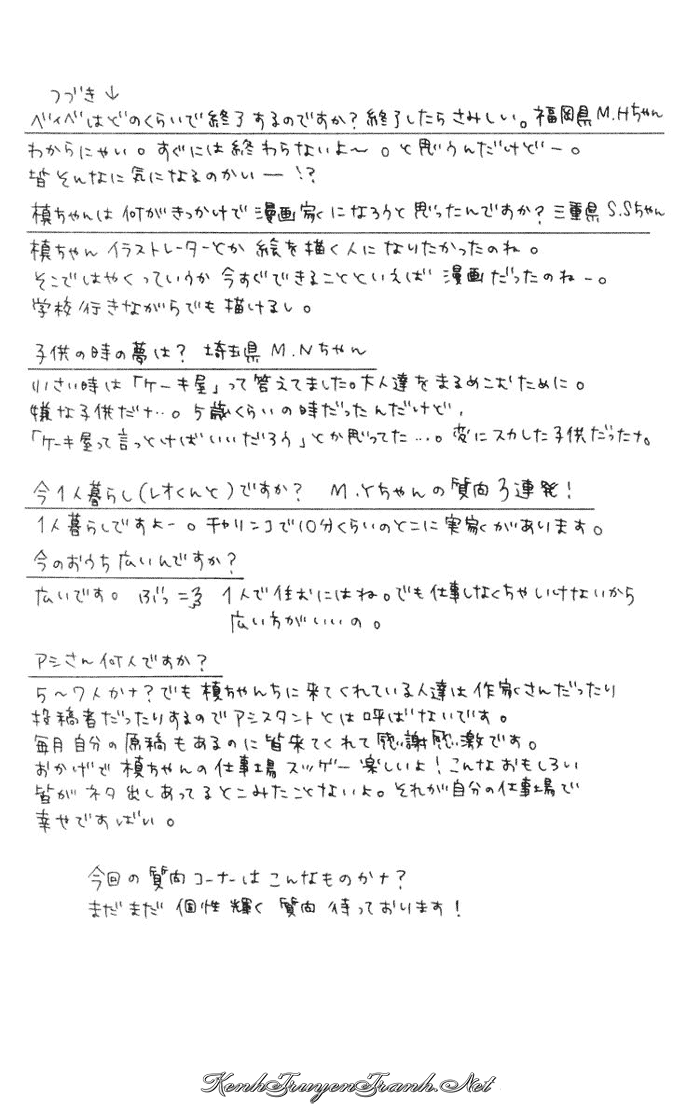 つづき↓
ベイベはどのくらいで終了するのですか?終了したらさみしい。福岡県M.Hちゃん
わからにゃい。すぐには終わらないよ〜。と思うんだけどー。
皆そんなに気になるのかいー!?
槙ちゃんは何がきっかけで漫画家になろうと思ったんですか?三重県S.Sちゃん
槙ちゃんイラストレーターとか絵を描く人になりたかったのね。
そこではやくっていうか今すぐできることといえば漫画だったのねー。
学校行きながらでも描けるし。
子供の時の夢は? 埼玉県M.Nちゃん
小さい時は「ケーキ屋」って答えてました。大人達をまるめこむために。
嫌な子供だナ…。5歳くらいの時だったんだけど、
「ケーキ屋って言っとけばいいだろう」とか思ってた…。変にスカした子供だったナ。
今1人暮らし(レオくんと)ですか? M.Yちゃんの質問3連発!
1人暮らしですよー。チャリンコで10分くらいのとこに実家があります。
今のおうち広いんですか?
広いです。ぶっこ 1人で住むにはね。でも仕事しなくちゃいけないから
広い方がいいの。
アシさん何人ですか?
5〜7人かナ?でも槙ちゃんちに来てくれている人達は作家さんだったり
投稿者だったりするのでアシスタントとは呼ばないです。
毎月自分の原稿もあるのに皆来てくれて感謝感激です。
おかげで槙ちゃんの仕事場スッゲー楽しいよ!こんなおもしろい
皆がネタ出しあってるとこみたことないよ。それが自分の仕事場で
幸せですばい。
今回の質問コーナーはこんなものかナ?
まだまだ個性輝く質問待っております!
KenhTruyenTranh.Net